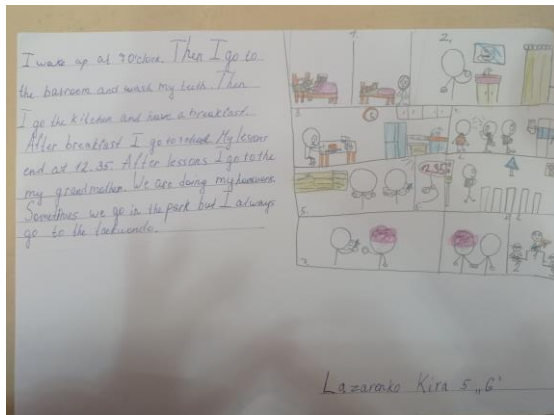 I wake up at 7 O'clock. Then I go to
the basroom and wash my teeth. Then
I go the kitchen and have a breakfast.
After breakfast I go to school. My lessons
end at 12.35. After lessons I go to the
my grandmother. We are doing my homework.
Sometimes we go in the park but I always
go to the taekwondo.
1.
2.
3.
12.35
5.
7.
Lazarenko Kira 5 „G"